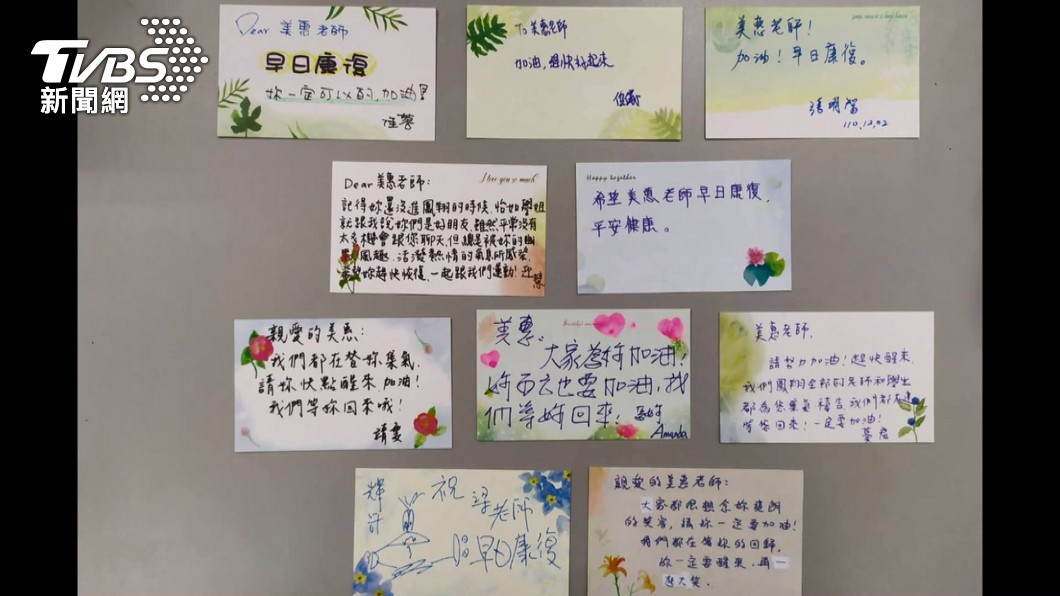 TVBS
新聞網
Dear 美惠老師
早日康復
妳一定可以的,加油!
佳蓉
To 美惠老師
加油,趕快好起來
美惠老師!
加油!早日康復。
110.12.02
Dear 美惠老師:
I love you so much
記得妳還沒進鳳翔的時候,怡如學姐
就跟我說妳們是好朋友,雖然平常沒有
太多機會跟您聊天,但總是被妳的幽
風趣、活潑熱情的氣息所感染,
希望妳趕快恢復,一起跟我們運動!
Happy together
希望美惠老師早日康復,
平安健康。
親愛的美惠:
我們都在替妳集氣,
請妳快點醒來 加油!
我們等妳回來哦!
靖雯
美惠:
大家為妳加油!
妳自己也要加油,我
們等妳回來!
Amanda
美惠老師,
請努力加油!趕快醒來,
我們鳳翔全部的老師和學生
都為您集氣禱告,我們都在這
等您回來!一定要加油!
祝
梁老師
早日康復
親愛的美惠老師:
大家都很想念妳爽朗
的笑容,請妳一定要加油!
我們都在等妳的回歸,
妳一定要醒來,再一
起大笑。